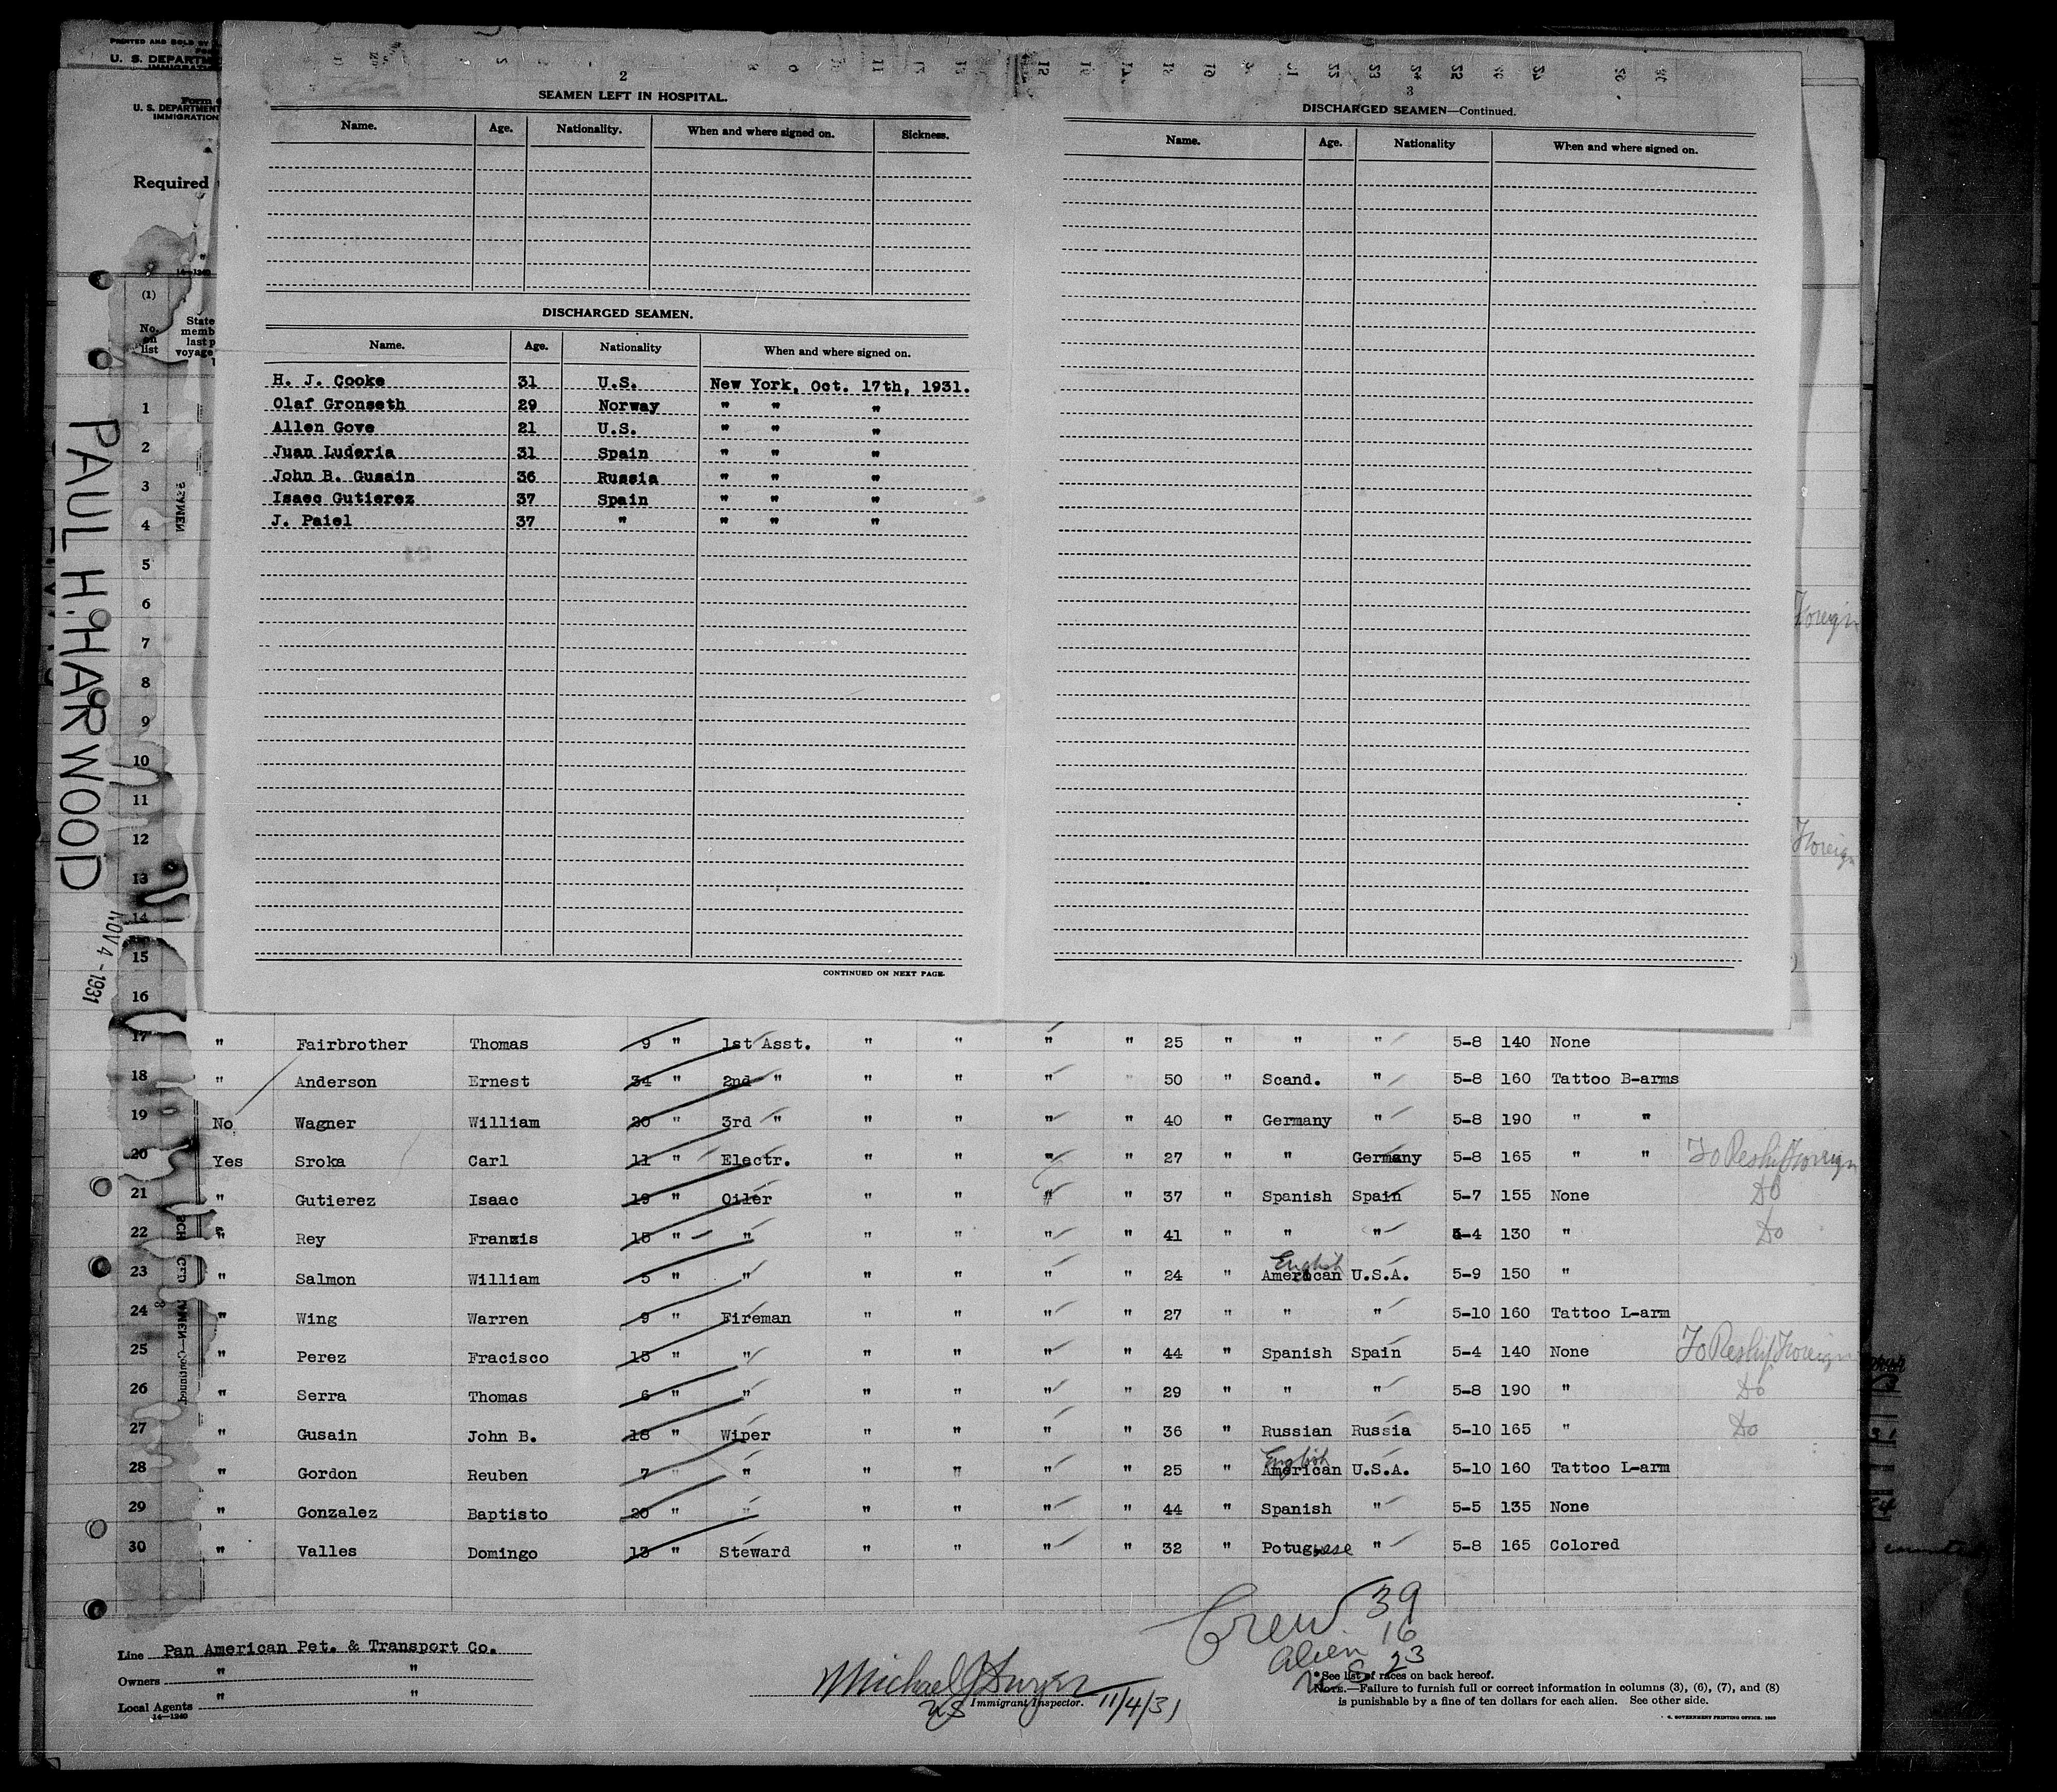 PRINTED AND SOLD BY
U. S. DEPARTM
IMMIGRAT
Form
U. S. DEPARTMENT
IMMIGRATION
Required
14—1240
(1)
No. on list
State
memb
last p
voyage
PAUL H. HARWOOD
NOV 4 - 1931
2
SEAMEN LEFT IN HOSPITAL.
Name. Age. Nationality. When and where signed on. Sickness.
DISCHARGED SEAMEN.
Name. Age. Nationality When and where signed on.
H. J. Cooke 31 U.S. New York, Oct. 17th, 1931.
Olaf Gronseth 29 Norway " " "
Allen Gove 21 U.S. " " "
Juan Luderia 31 Spain " " "
John B. Gusain 36 Russia " " "
Isaec Gutierez 37 Spain " " "
J. Paiel 37 " " " "
CONTINUED ON NEXT PAGE.
3
DISCHARGED SEAMEN—Continued.
Name. Age. Nationality When and where signed on.
Foreign
Foreign
1
2
3
4
5
6
7
8
9
10
11
12
13
14
15
16
17 " Fairbrother Thomas 9 " 1st Asst. " " " " 25 " " " 5-8 140 None
18 " Anderson Ernest 34 " 2nd " " " " " 50 " Scand. " 5-8 160 Tattoo B-arms
19 No Wagner William 20 " 3rd " " " " " 40 " Germany " 5-8 190 " "
20 Yes Sroka Carl 11 " Electr. " " " " 27 " " Germany 5-8 165 " " To Reship Foreign
21 " Gutierez Isaac 19 " Oiler " " " " 37 " Spanish Spain 5-7 155 None Do
22 " Rey Franxis 15 " " " " " " 41 " " " 5-4 130 " Do
23 " Salmon William 5 " " " " " " 24 " American English U.S.A. 5-9 150 "
24 " Wing Warren 9 " Fireman " " " " 27 " " " 5-10 160 Tattoo L-arm
25 " Perez Fracisco 15 " " " " " " 44 " Spanish Spain 5-4 140 None To Reship Foreign
26 " Serra Thomas 6 " " " " " " 29 " " " 5-8 190 " Do
27 " Gusain John B. 18 " Wiper " " " " 36 " Russian Russia 5-10 165 " Do
28 " Gordon Reuben 7 " " " " " " 25 " American English U.S.A. 5-10 160 Tattoo L-arm
29 " Gonzalez Baptisto 20 " " " " " " 44 " Spanish " 5-5 135 None
30 " Valles Domingo 13 " Steward " " " " 32 " Potuguese " 5-8 165 Colored
Crew 39
Alien 16
U S 23
Line Pan American Pet. & Transport Co.
Owners " "
Local Agents " "
14—1240
Michael J Dwyer
US Immigrant Inspector. 11/4/31
* See list of races on back hereof.
NOTE.—Failure to furnish full or correct information in columns (3), (6), (7), and (8)
is punishable by a fine of ten dollars for each alien. See other side.
GOVERNMENT PRINTING OFFICE